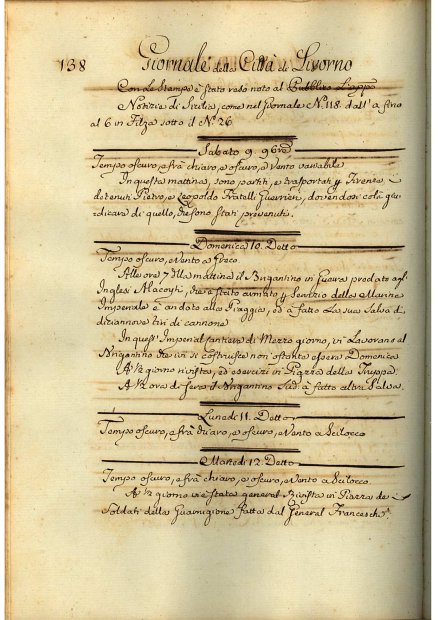 138 Giornale della Città di Livorno
Con le Stampe è stato reso noto al Pubblico
Notizie di Sicilia, come nel Giornale N.º 118. dall' a fino
al 6 in Filza sotto il N.º 26
Sabato 9. 9bre
Tempo oscuro, e frà chiaro, e oscuro, e Vento variabile
In questa mattina, sono partiti, e trasportati p Firenze i
detenuti Pietro, e Leopoldo Fratelli Guerrieri, dovendosi colà giu-
dicare di quello, che sono stati prevenuti.
Domenica 10. Detto
Tempo oscuro, e Vento a Greco
Alle ore 7 della mattina il Brigantino in Guerra predato agl'
Inglesi che è stato armato p Servizio della Marina
Imperiale è andato alla Piaggia, ed à fatto la sua Salva di
diciannove tiri di cannone
In quest' Imperial Cantiere di Mezzo giorno, vi Lavorano al
Brigantino che ivi si costruisce non ostante essere Domenica
A ½ giorno rivista, ed esercizi in Piazza della Truppa
A ½ ora di sera il Brigantino Sud.º à fatto altra Salva.
Lunedi 11. Detto
Tempo oscuro, e frà chiaro, e oscuro, e Vento a Scilocco
Martedi 12. Detto
Tempo oscuro, e frà chiaro, e oscuro, e Vento a Scilocco.
A ½ giorno vi è stata general Rivista in Piazza de
Soldati della Guarnigione fatta dal General Franceschi.